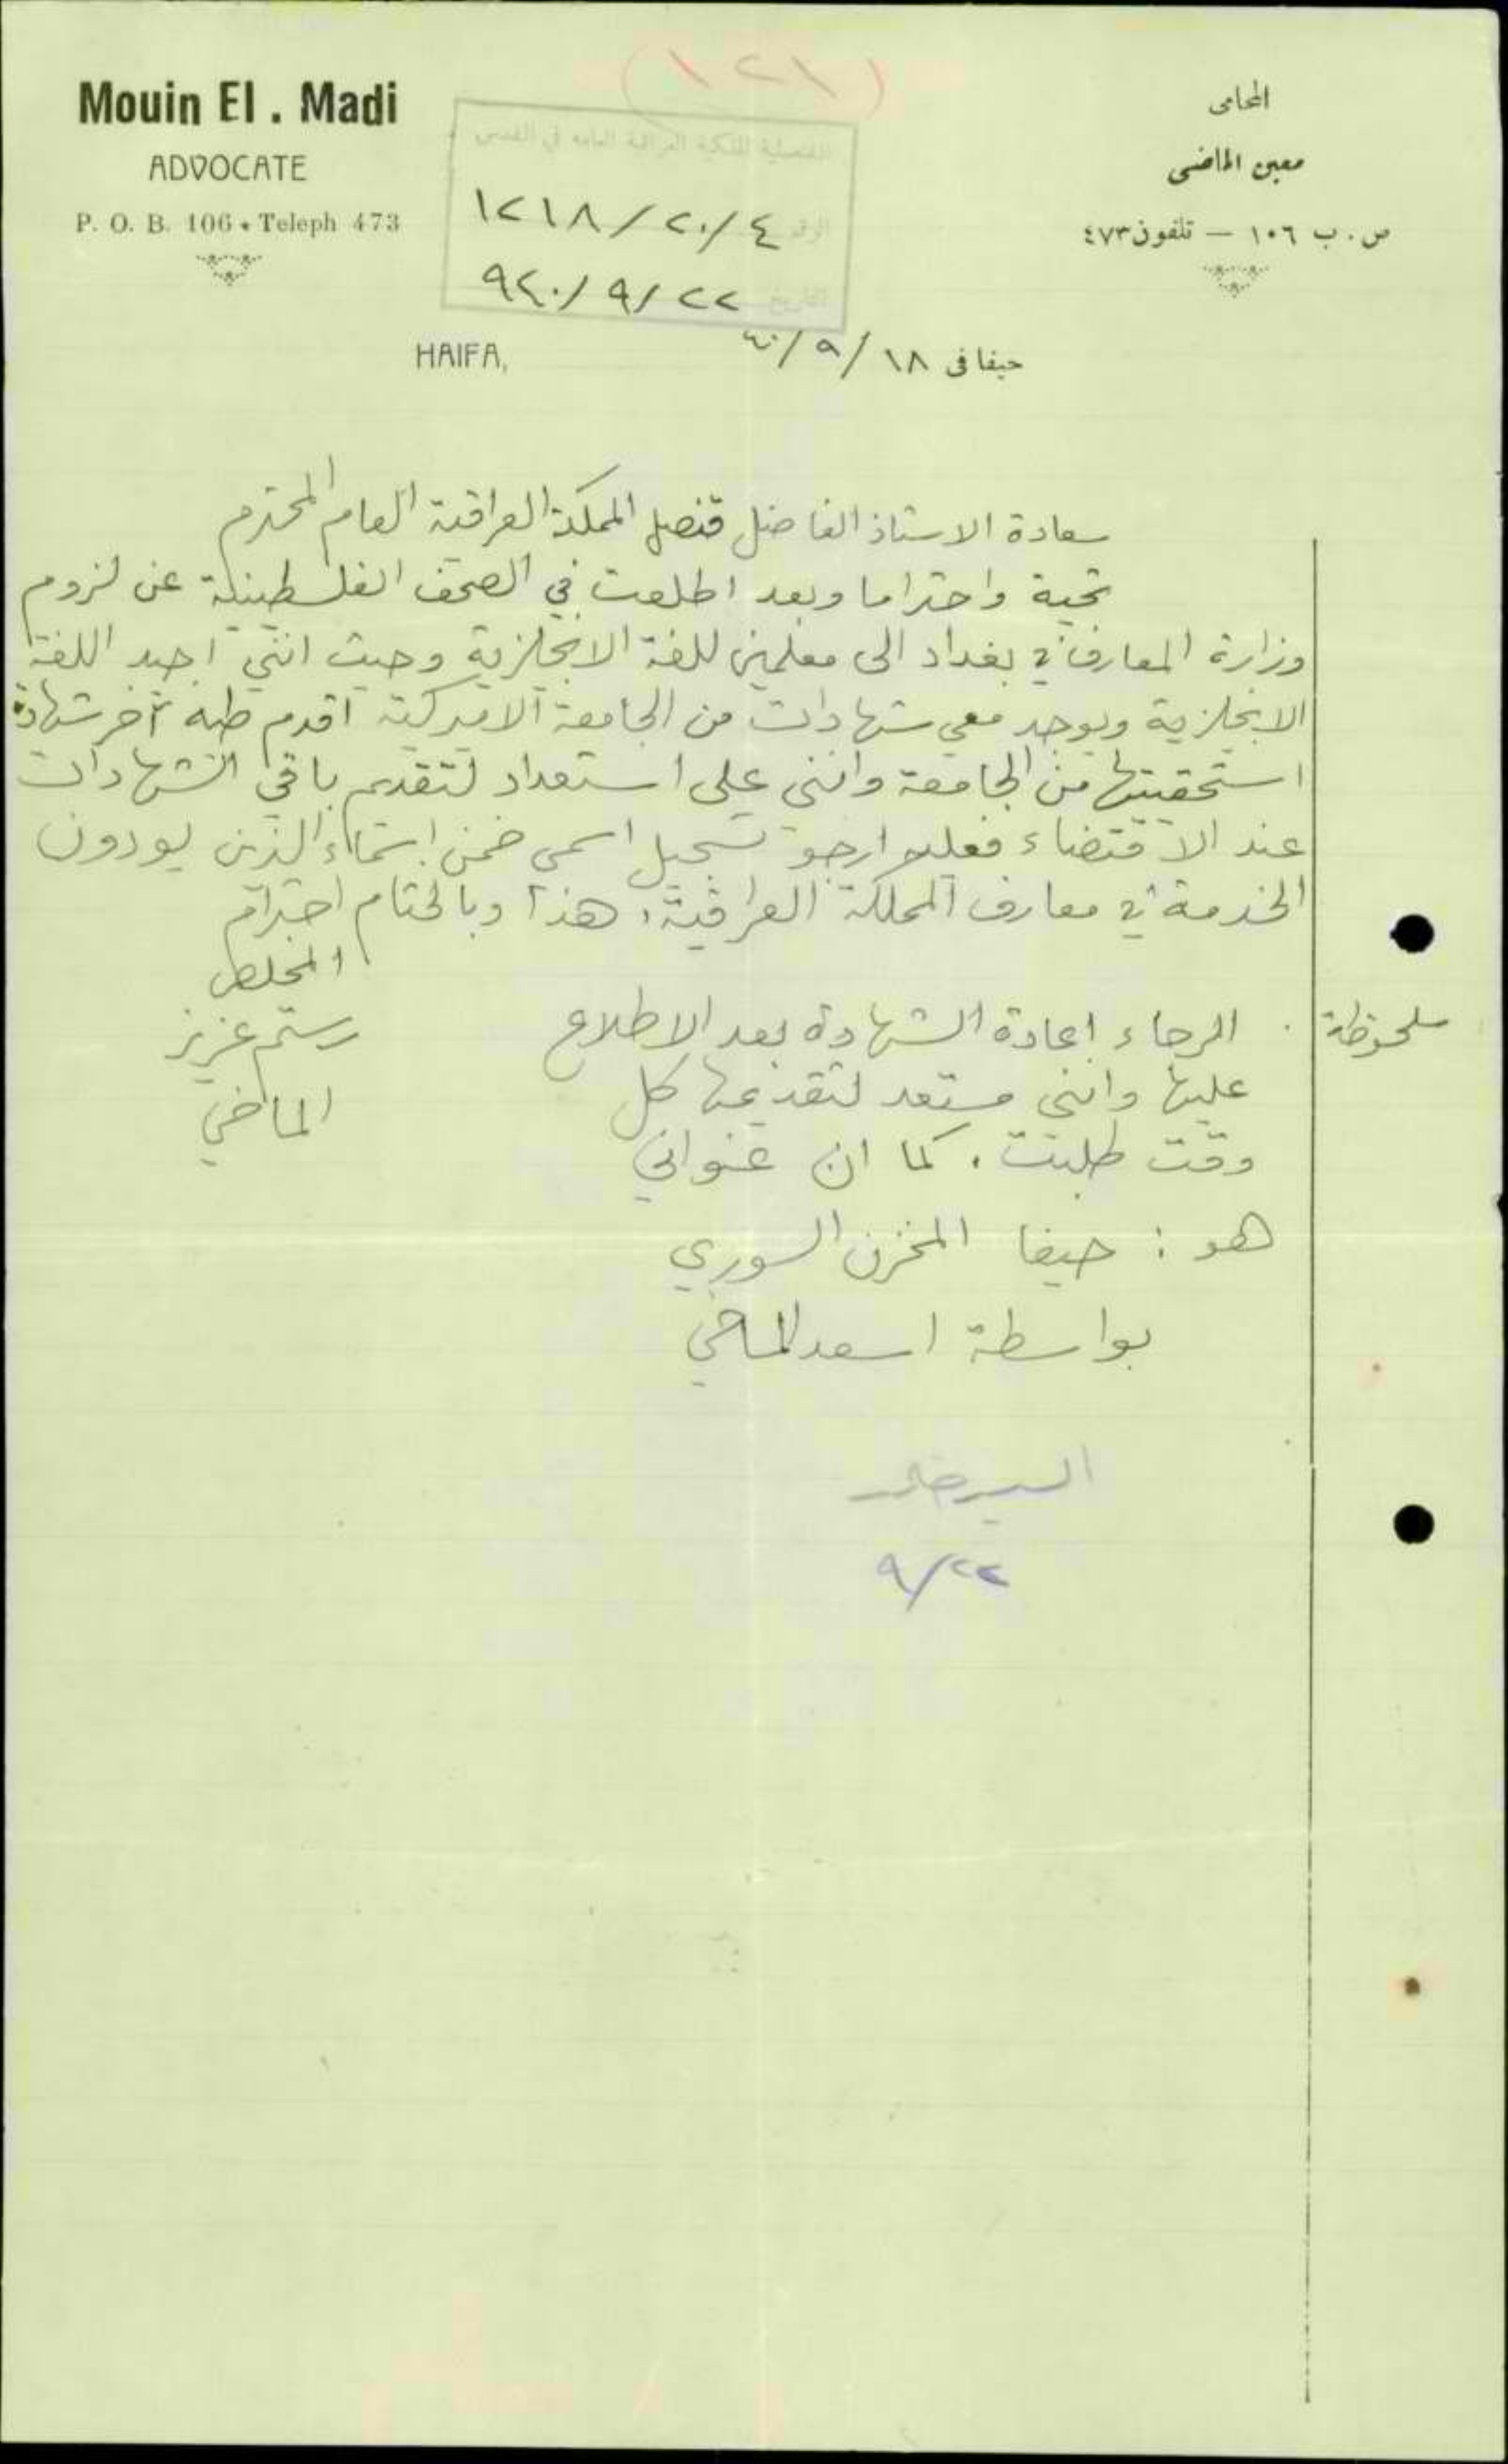 (١٢١)
Mouin El. Madi
ADVOCATE
P. O. B. 106 • Teleph 473
المحامى
معين الماضى
ص. ب ١٠٦ — تلفون ٤٧٣
القنصلية الملكية العراقية العامة في القدس
الرقم ١٢١٨/٢٠/٤
التاريخ ٩٤٠/٩/٢٢
HAIFA,
حيفا فى ١٨/٩/٤٠
سعادة الاستاذ الفاضل قنصل المملكة العراقية العام المحترم
تحية واحتراما وبعد اطلعت في الصحف الفلسطينية عن لزوم
وزارة المعارف في بغداد الى معلمين للغة الانجلزية وحيث انني اجيد اللغة
الانجلزية ويوجد معي شهادات من الجامعة الاميركية اقدم طيه آخر شهادة
استحقيتها من الجامعة وانني على استعداد لتقديم باقي الشهادات
عند الاقتضاء فعليه ارجو تسجيل اسمي ضمن اسماء الذين يودون
الخدمة في معارف المملكة العراقية، هذا وبالختام احترام
المخلص
رستم عزيز
الماضي
ملحوظة . الرجاء اعادة الشهادة بعد الاطلاع
عليها وانني مستعد لتقديمها كل
وقت طلبت. كما ان عنواني
هو : حيفا المخزن السوري
بواسطة اسعد الماضي
٩/٢٢